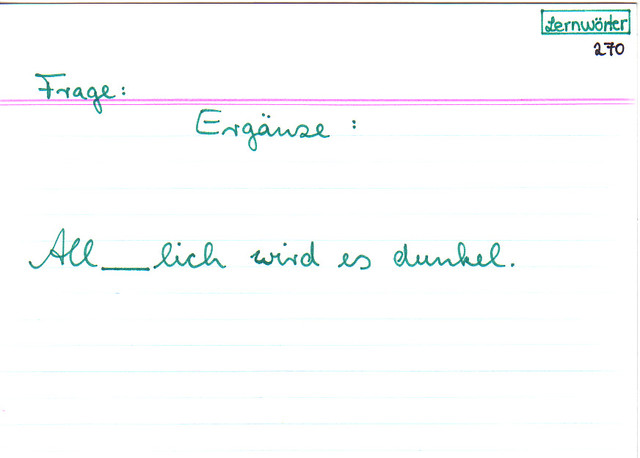 Lernwörter
270
Frage:
Ergänze:
All___lich wird es dunkel.